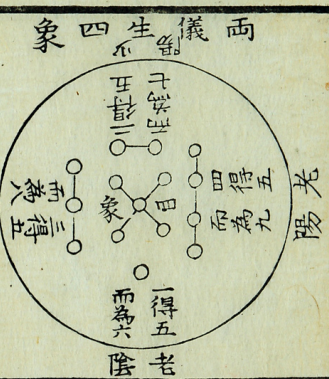 両儀生四象
少陽
二得五
而為七
老陽
四得五
而為九
四象
三得五
而為八
一得五
而為六
老陰